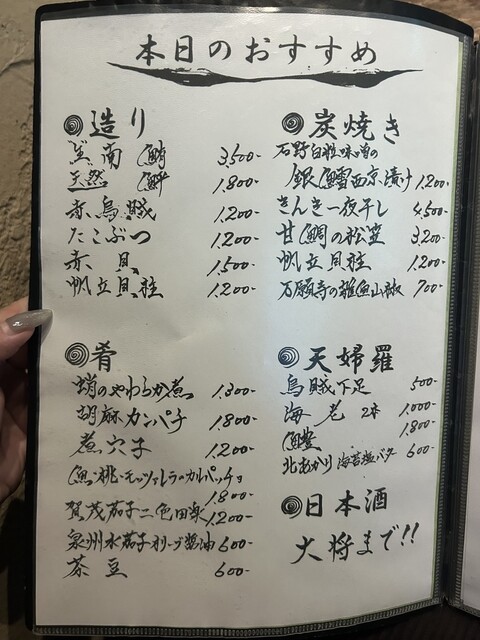 本日のおすすめ
造り
3,500-
天然 1,800-
赤烏賊 1,200-
たこぶつ 1,200-
赤貝 1,500-
帆立貝柱 1,200-
肴
蛸のやわらか煮 1,300-
胡麻カンパチ 1,800-
煮穴子 1,200-
魚・桃・モッツァレラのカルパッチョ
1,800-
賀茂茄子二色田楽 1,200-
泉州水茄子オリーブ醤油 600-
茶豆 600-
炭焼き
石野白粒味噌の
銀鱈西京漬け 1,200-
きんき一夜干し 4,500-
甘鯛の松笠 3,200-
帆立貝柱 1,200-
万願寺の雑魚山椒 700-
天婦羅
烏賊下足 500-
海老 2本 1,000-
鱧 1,800-
北あかり海苔塩バター 600-
日本酒
大将まで!!